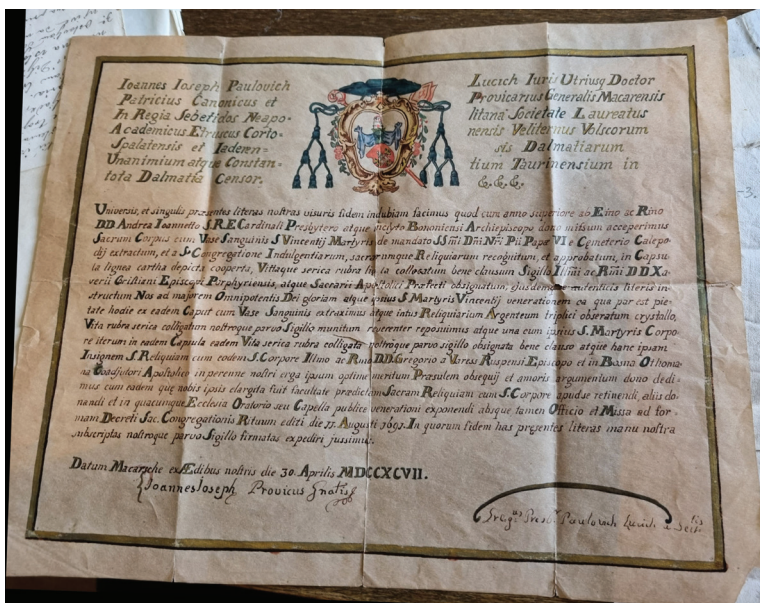 Ioannes Ioseph Paulovich
Patricius Canonicus et
In Regia Sebetidos Neapo=
Academicus Etruscus Corto=
Spalatensis et Iaderen=
Unanimium atque Constan=
tota Dalmatia Censor.
Lucich Iuris Utriusq Doctor
Provicarius Generalis Macarensis
litana Societate Laureatus
nensis Veliternus Volscorum
sis Dalmatiarum
tium Taurinensium in
&. &. &.
Universis, et singulis præsentes literas nostras visuris fidem indubiam facimus quod cum anno superiore ao Emo ac Rmo
DD Andrea Ioannetto S.R.E Cardinali Presbytero atque inclyto Bononiensi Archiepiscopo dono missum acceperimus
Sacrum Corpus cum Vase Sanguinis S Vincentij Martyris de mandato SSmi Dni Nri Pii Papæ VI e Cemeterio Calepo-
dij extractum, et a S. Congregatione Indulgentiarum, sacrarumque Reliquiarum recognitum, et approbatum, in Capsu
la lignea cartha depicta cooperta, Vittaque serica rubra ligata collosatum bene clausum Sigillo Illmi ac Rmi DD Xa-
verii Cristiani Episcopi Porphyriensis, atque Sacrarii Apostolici Præfecti obsignatum, ejusdemque autenticis literis in-
structum Nos ad majorem Omnipotentis Dei gloriam atque ipsius S Martyris Vincentij venerationem ea qua par est pie-
tate hodie ex eadem Caput cum Vase Sanguinis extraximus atque intus Reliquiarium Argenteum triplici obseratum crystallo,
Vita rubra serica colligatum nostroque parvo Sigillo munitum reverenter reposuimus atque una cum ipsius S. Martyris Corpo-
re iterum in eadem Capsula eadem Vita serica rubra colligata nostroque parvo sigillo obsignata bene clauso atque hanc ipsam
Insignem S. Reliquiam cum eodem S. Corpore Illmo ac Rmo D.D. Gregorio a Varess Ruspensi Episcopo et in Bosna Othoma-
na Coadjutori Apostolico in perenne nostri erga ipsum optime meritum Præsulem obsequij et amoris argumentum dono dedi-
mus cum eadem que nobis ipsis elargita fuit facultate prædictam Sacram Reliquiam cum S. Corpore apud se retinendi, aliis do-
nandi et in quacumque Ecclesia Oratorio seu Capella publice venerationi exponendi absque tamen Officio et Missa ad for-
mam Decreti Sac. Congregationis Rituum editi die 11 Augusti 1691. In quorum fidem has presentes literas manu nostra
subscriptas nostroque parvo Sigillo firmatas expediri jussimus.
Datum Macarschæ ex Ædibus nostris die 30. Aprilis MDCCXCVII.
Ioannes Ioseph Provicus Gnalis
Paulovich Lucich